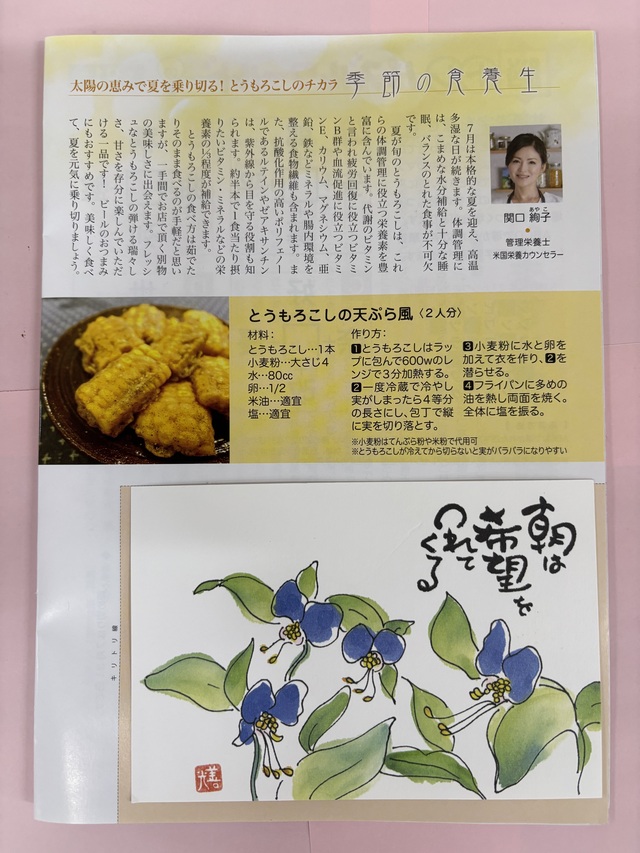 太陽の恵みで夏を乗り切る！とうもろこしのチカラ
季節の食養生
７月は本格的な夏を迎え、高温
多湿な日が続きます。体調管理に
は、こまめな水分補給と十分な睡
眠、バランスのとれた食事が不可欠
です。
夏が旬のとうもろこしは、これ
らの体調管理に役立つ栄養素を豊
富に含んでいます。代謝のビタミン
と言われ疲労回復に役立つビタミ
ンB群や血流促進に役立つビタミ
ンE、カリウム、マグネシウム、亜
鉛、鉄などミネラルや腸内環境を
整える食物繊維も含まれます。ま
た、抗酸化作用の高いポリフェノー
ルであるルテインやゼアキサンチン
は、紫外線から目を守る役割も知
られます。約半本で１食当たり摂
りたいビタミン・ミネラルなどの栄
養素の⅓程度が補給できます。
とうもろこしの食べ方は茹でた
りそのまま食べるのが手軽だと思い
ますが、一手間でお店で頂く別物
の美味しさに出会えます。フレッシ
ュなとうもろこしの弾ける瑞々し
さ、甘さを存分に楽しんでいただ
ける一品です！ビールのおつまみ
にもおすすめです。美味しく食べ
て、夏を元気に乗り切りましょう。
あやこ
関口 絢子
管理栄養士
米国栄養カウンセラー
とうもろこしの天ぷら風〈２人分〉
材料：
とうもろこし…1本
小麦粉…大さじ４
水…80cc
卵…1/2
米油…適宜
塩…適宜
作り方：
1とうもろこしはラッ
プに包んで600wのレ
ンジで３分加熱する。
2一度冷蔵で冷やし
実がしまったら４等分
の長さにし、包丁で縦
に実を切り落とす。
3小麦粉に水と卵を
加えて衣を作り、2を
潜らせる。
4フライパンに多めの
油を熱し両面を焼く。
全体に塩を振る。
※小麦粉はてんぷら粉や米粉で代用可
※とうもろこしが冷えてから切らないと実がバラバラになりやすい
朝は
希望を
つれて
くる